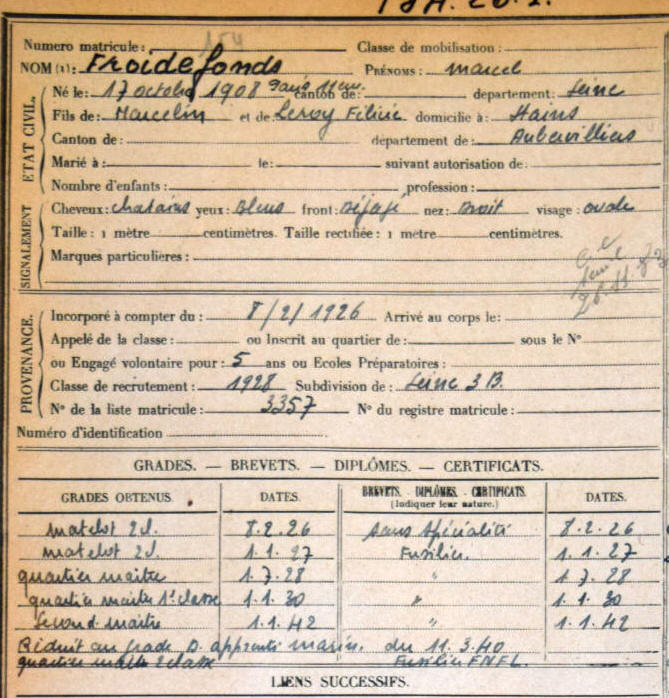 Numero matricule : 154 Classe de mobilisation :
NOM (1) : Froidefonds PRÉNOMS : marcel
ETAT CIVIL.
Né le : 17 octobre 1908 Paris 11em. canton de : departement : Seine
Fils de : Marcelin et de Leroy domicilie à : Stains
Canton de : département de : Aubervilliers
Marié à : le : suivant autorisation de :
Nombre d'enfants : profession :
SIGNALEMENT
Cheveux : chatains yeux : Bleus front : Dégagé nez : Droit visage : ovale
Taille : 1 mètre centimètres. Taille rectifiée : 1 mètre centimètres.
Marques particulières :
PROVENANCE.
Incorporé à compter du : 8/2/1926 Arrivé au corps le :
Appelé de la classe : ou Inscrit au quartier de : sous le N°
ou Engagé volontaire pour : 5 ans ou Ecoles Préparatoires :
Classe de recrutement : 1928 Subdivision de : Seine 3 B.
N° de la liste matricule : 3357 N° du registre matricule :
Numéro d'identification
GRADES. — BREVETS. — DIPLÔMES. — CERTIFICATS.
GRADES OBTENUS. DATES. BREVETS. - DIPLÔMES. - CERTIFICATS. DATES.
(Indiquer leur nature.)
matelot 2cl. 8.2.26 sans spécialité 8.2.26
matelot 2cl. 1.1.27 Fusilier. 1.1.27
quartier maitre 1.7.28 " 1.7.28
quartier maitre 1e classe 1.1.30 " 1.1.30
Second maitre 1.1.42 " 1.1.42
Réduit au grade D. apprenti marin. du 11.3.40
quartier maitre 2 classe Fusilier FNFL.
LIENS SUCCESSIFS.